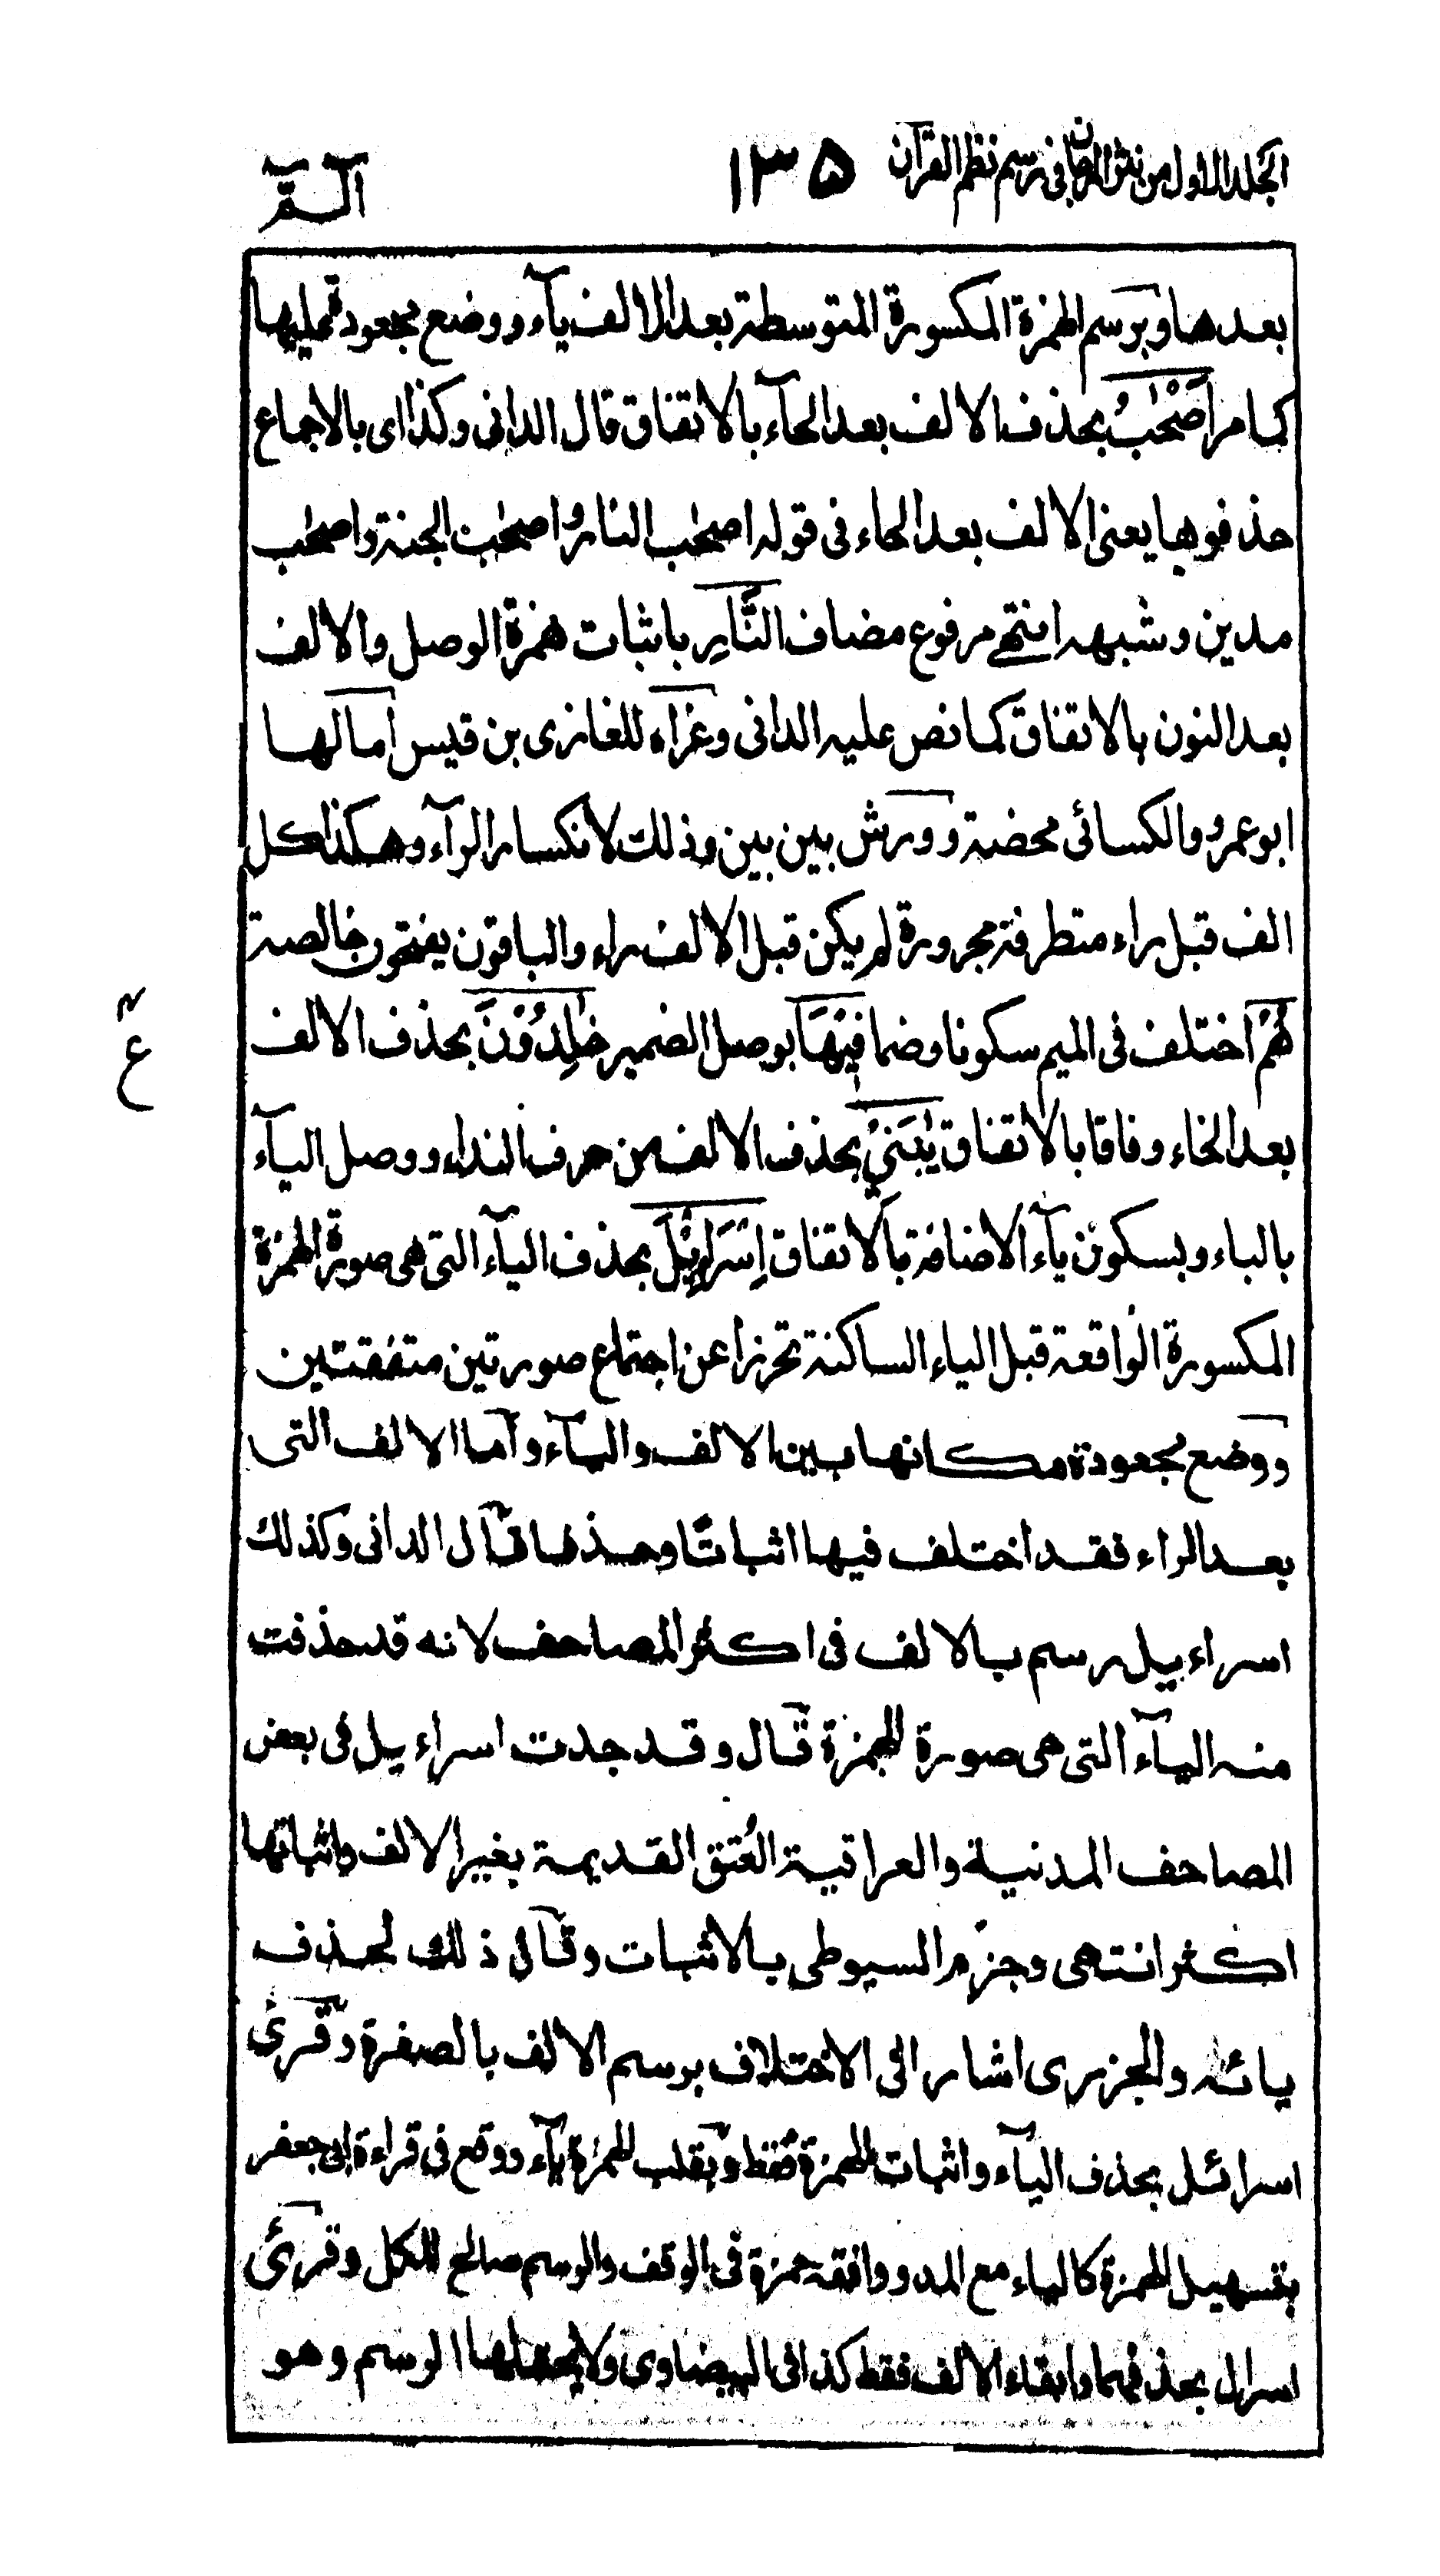 الجلد الاول من نثر المرجان فى رسم نظم القرآن ١٣٥ آلٓمّٓ
بعدها وبرسم الهمزة المكسورة المتوسطة بعد الالف يآء ووضع مجعودة عليها
كما مر اَصْحٰبُ بحذف الالف بعد الحآء بالاتفاق قال الدانى وكذا اى بالاجماع
حذفوها يعنى الالف بعد الحاء فى قوله اصحٰب النار واصحٰب الجنة واصحٰب
مدين وشبهه انتهى مرفوع مضاف النَّارِ باثبات همزة الوصل والالف
بعد النون بالاتفاق كما نص عليه الدانى وعزاه للغازى بن قيس امالها
ابو عمرو والكسائى محضة وورش بين بين وذلك لانكسار الرآء وهكذا كل
الف قبل راء متطرفة مجرورة لم يكن قبل الالف راء والباقون يفتحون خالصة
هُمْ اختلف فى الميم سكونا وضما فِيْهَا بوصل الضمير خٰلِدُوْنَ بحذف الالف
ع
بعد الخاء وفاقا بالاتفاق يٰبَنِىْ بحذف الالف من حرف النداء ووصل اليآء
بالباء وبسكون يآء الاضافة بالاتفاق اِسْرَاءِيْلَ بحذف اليآء التى هى صورة الهمزة
المكسورة الواقعة قبل الياء الساكنة تحرزا عن اجتماع صورتين متفقتين
ووضع مجعودة مكانها بين الالف واليآء وآما الالف التى
بعد الراء فقد اختلف فيها اثباتًا وحذفا قآل الدانى وكذلك
اسراءيل رسم بالالف فى اكثر المصاحف لانه قد حذفت
منه اليآء التى هى صورة الهمزة قآل وقد جدت اسراءيل فى بعض
المصاحف المدنية والعراقية العُتق القديمة بغير الالف واثباتها
اكثر انتهى وجزم السيوطى بالاثبات وقآل ذلك لحذف
يائه والجزرى اشار الى الاختلاف برسم الالف بالصفرة وقرئ
اسرائل بحذف اليآء واثبات الهمزة فقط وبقلب الهمزة يآء ووقع فى قراءة ابى جعفر
بتسهيل الهمزة كالياء مع المد ووافقه حمزة فى الوقف والرسم صالح للكل وقرئ
اسرال بحذفهما وابقاء الالف فقط كذا فى البيضاوى ولا يحتملها الرسم وهو